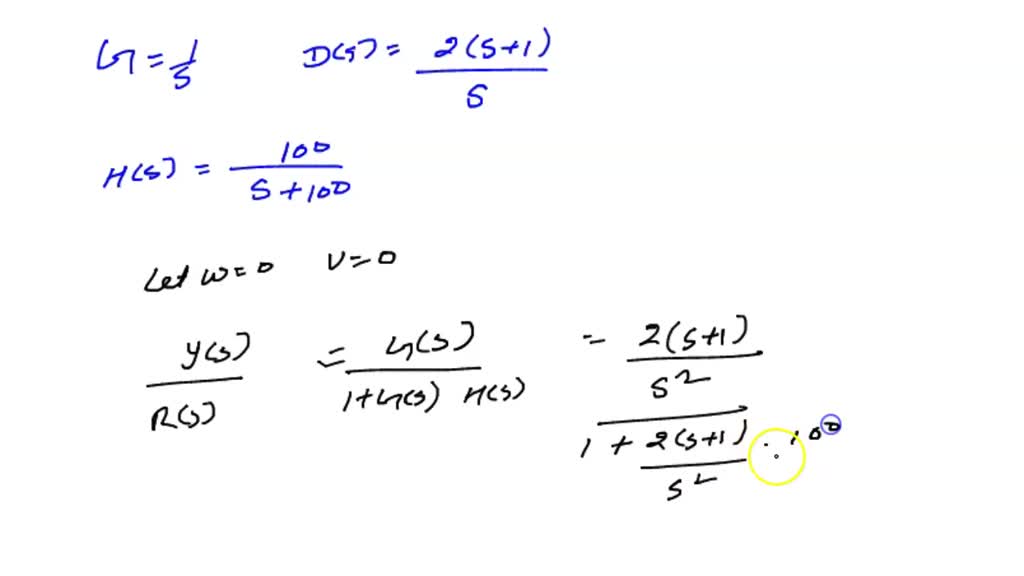 G = 1/s D(s) = 2(s+1)/s
H(s) = 100/s+100
Let w=0 v=0
Y(s)/R(s) = G(s)/1+G(s) H(s) = 2(s+1)/s² / 1 + 2(s+1)/s² · 100